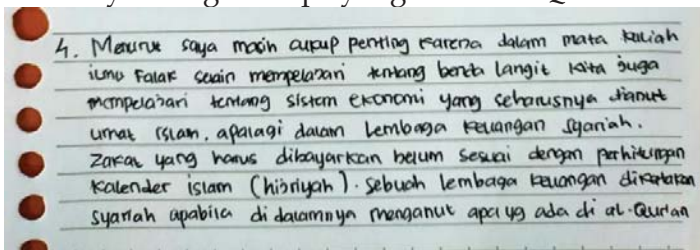 4. Menurut saya masih cukup penting karena dalam mata kuliah
ilmu Falak selain mempelajari tentang benda langit kita juga
mempelajari tentang sistem ekonomi yang seharusnya dianut
umat islam, apalagi dalam Lembaga keuangan syariah.
Zakat yang harus dibayarkan belum sesuai dengan perhitungan
Kalender islam (hijriyah). Sebuah lembaga keuangan dikatakan
syariah apabila di dalamnya menganut apa yg ada di al-Qur'an